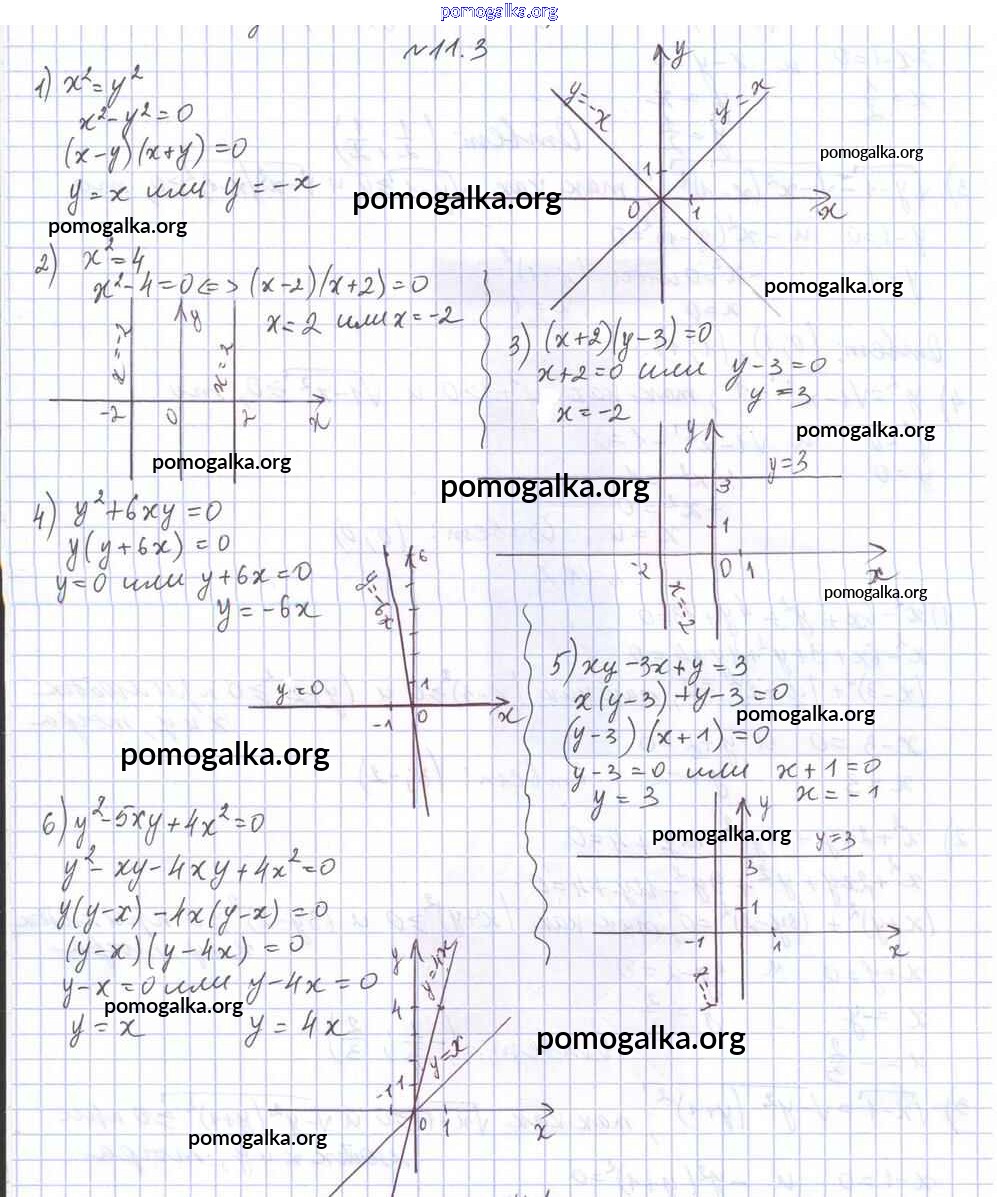 pomogalka.org
№11.3
1) x²=y²
x²-y²=0
(x-y)(x+y)=0
y=x или y=-x
pomogalka.org
y=-x
y=x
y
1
0
1
x
pomogalka.org
pomogalka.org
pomogalka.org
2) x²=4
x²-4=0<=>(x-2)(x+2)=0
x=2 или x=-2
x=-2
y
x=2
-2
0
2
x
pomogalka.org
3) (x+2)(y-3)=0
x+2=0 или y-3=0
x=-2
y=3
pomogalka.org
y
y=3
3
1
-2
0
1
x
x=-2
pomogalka.org
pomogalka.org
4) y²+6xy=0
y(y+6x)=0
y=0 или y+6x=0
y=-6x
6
y=-6x
1
y=0
-1
0
x
pomogalka.org
5) xy-3x+y=3
x(y-3)+y-3=0
pomogalka.org
(y-3)(x+1)=0
y-3=0 или x+1=0
y=3
x=-1
y
pomogalka.org
y=3
3
1
-1
1
x
x=-1
6) y²-5xy+4x²=0
y²-xy-4xy+4x²=0
y(y-x)-4x(y-x)=0
(y-x)(y-4x)=0
y-x=0 или y-4x=0
pomogalka.org
y=x
y=4x
y
y=4x
4
y=x
-1
1
0
1
x
pomogalka.org
pomogalka.org